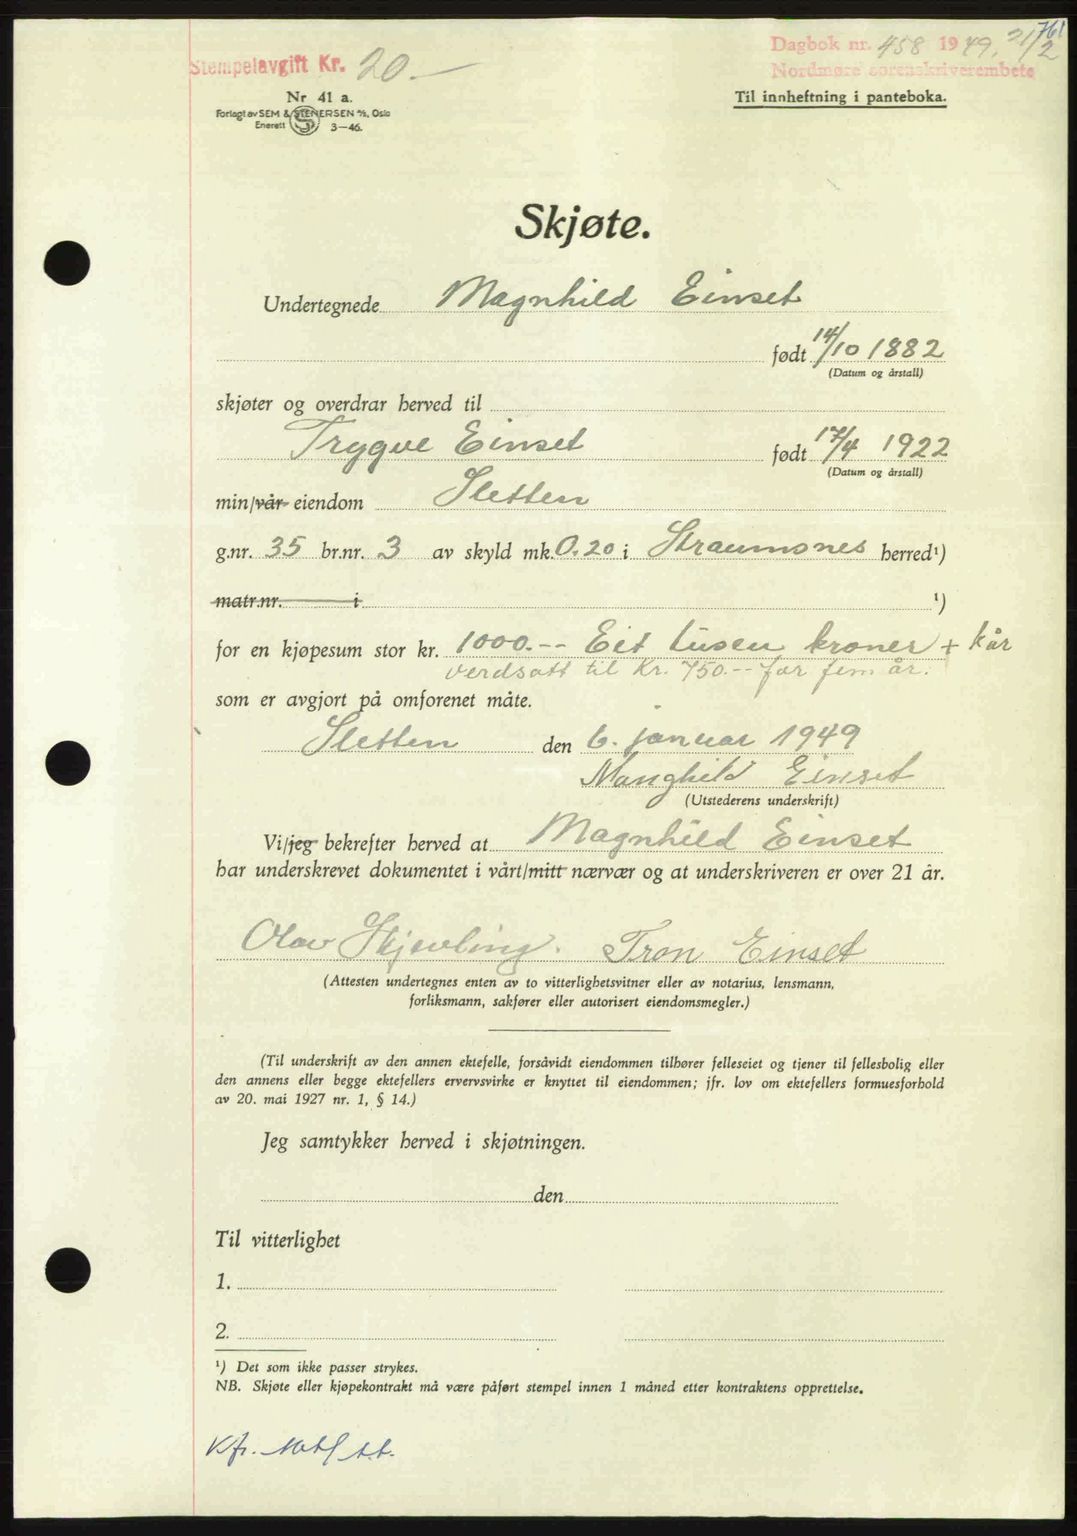 761
Dagbok nr. 458 1949. 21/2
Nordmøre sorenskriverembete
Stempelavgift Kr. 20.—
Nr 41 a.
Forlagt av SEM & STENERSEN A/S, Oslo
Enerett 3—46.
Til innheftning i panteboka.
Skjøte.
Undertegnede Magnhild Einset
født 14/10 1882
(Datum og årstall)
skjøter og overdrar herved til
Trygve Einset født 17/4 1922
(Datum og årstall)
min/vår eiendom Sletten
g.nr. 35 br.nr. 3 av skyld mk. 0.20 i Straumsnes herred¹)
matr.nr. i ¹)
for en kjøpesum stor kr. 1000.-- Eit tusen kroner + kår
verdsatt til kr. 750.-- for fem år.
som er avgjort på omforenet måte.
Sletten den 6. januar 1949
Manghild Einset
(Utstederens underskrift)
Vi/jeg bekrefter herved at Magnhild Einset
har underskrevet dokumentet i vårt/mitt nærvær og at underskriveren er over 21 år.
Olav Skjevling. Tron Einset
(Attesten undertegnes enten av to vitterlighetsvitner eller av notarius, lensmann,
forliksmann, sakfører eller autorisert eiendomsmegler.)
(Til underskrift av den annen ektefelle, forsåvidt eiendommen tilhører felleseiet og tjener til fellesbolig eller
den annens eller begge ektefellers ervervsvirke er knyttet til eiendommen; jfr. lov om ektefellers formuesforhold
av 20. mai 1927 nr. 1, § 14.)
Jeg samtykker herved i skjøtningen.
den
Til vitterlighet
1.
2.
¹) Det som ikke passer strykes.
NB. Skjøte eller kjøpekontrakt må være påført stempel innen 1 måned etter kontraktens opprettelse.